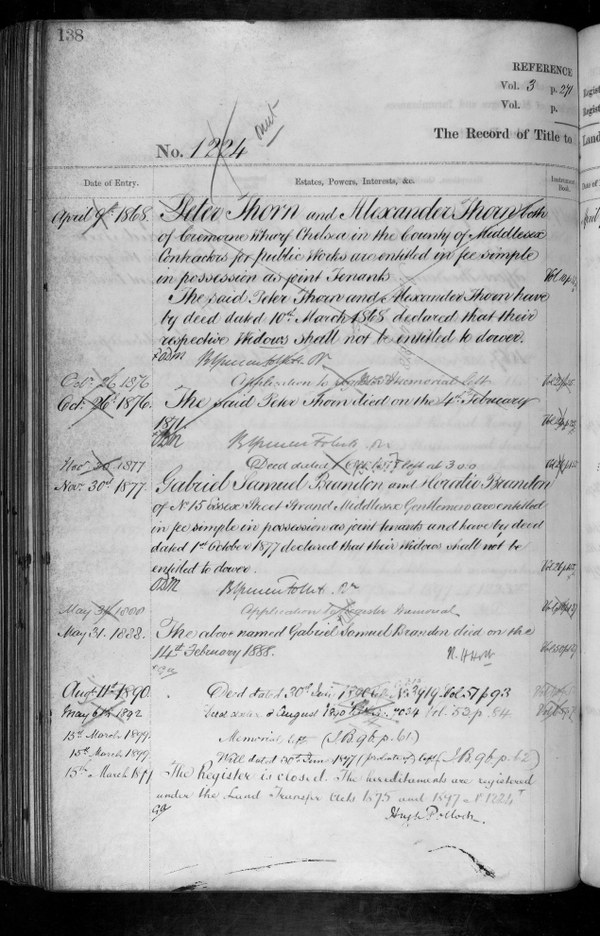 138
REFERENCE
Vol. 3 p. 271
Vol. p.
No. 1224
The Record of Title to
Land
Date of Entry.
Estates, Powers, Interests, &c.
Instrument Book.
April 9th 1868. Peter Thorn and Alexander Thorn both
of Cremorne Wharf Chelsea in the County of Middlesex
Contractors for Public Works are entitled in fee simple
in possession as joint Tenants
The said Peter Thorn and Alexander Thorn have
by deed dated 10th March 1868 declared that their
respective Widows shall not be entitled to dower.
B Spencer Follett Rr
Oct. 26 1876 Application to Memorial left
Oct. 26th 1876. The said Peter Thorn died on the 4th February
1871.
B Spencer Follett Rr
Nov. 1877 Deed dated left at 3 00
Nov. 30th 1877. Gabriel Samuel Brandon and Horatio Brandon
of No 15 Essex Street Strand Middlesex Gentlemen are entitled
in fee simple in possession as joint tenants and have by deed
dated 1st October 1877 declared that their Widows shall not be
entitled to dower.
B Spencer Follett Rr
May 31 1888 Application to Register Memorial
May 31. 1888. The above named Gabriel Samuel Brandon died on the
14th February 1888.
R. H. Holt
Augt 11th 1890. Deed dated 30th 1890 No 3919. Vol. 57 p 93
May 6th 1892 Deed August 1890 7034 Vol. 53 p. 84
15th March 1899. Memorial left (I.B. 96 p. 61)
15th March 1899. Will dated 30th June 1897 (probate) left (I.B. 96 p. 62)
15th March 1899 The Register is closed. The hereditaments are registered
under the Land Transfer Acts 1875 and 1897 No 1224
Hugh Pollock.